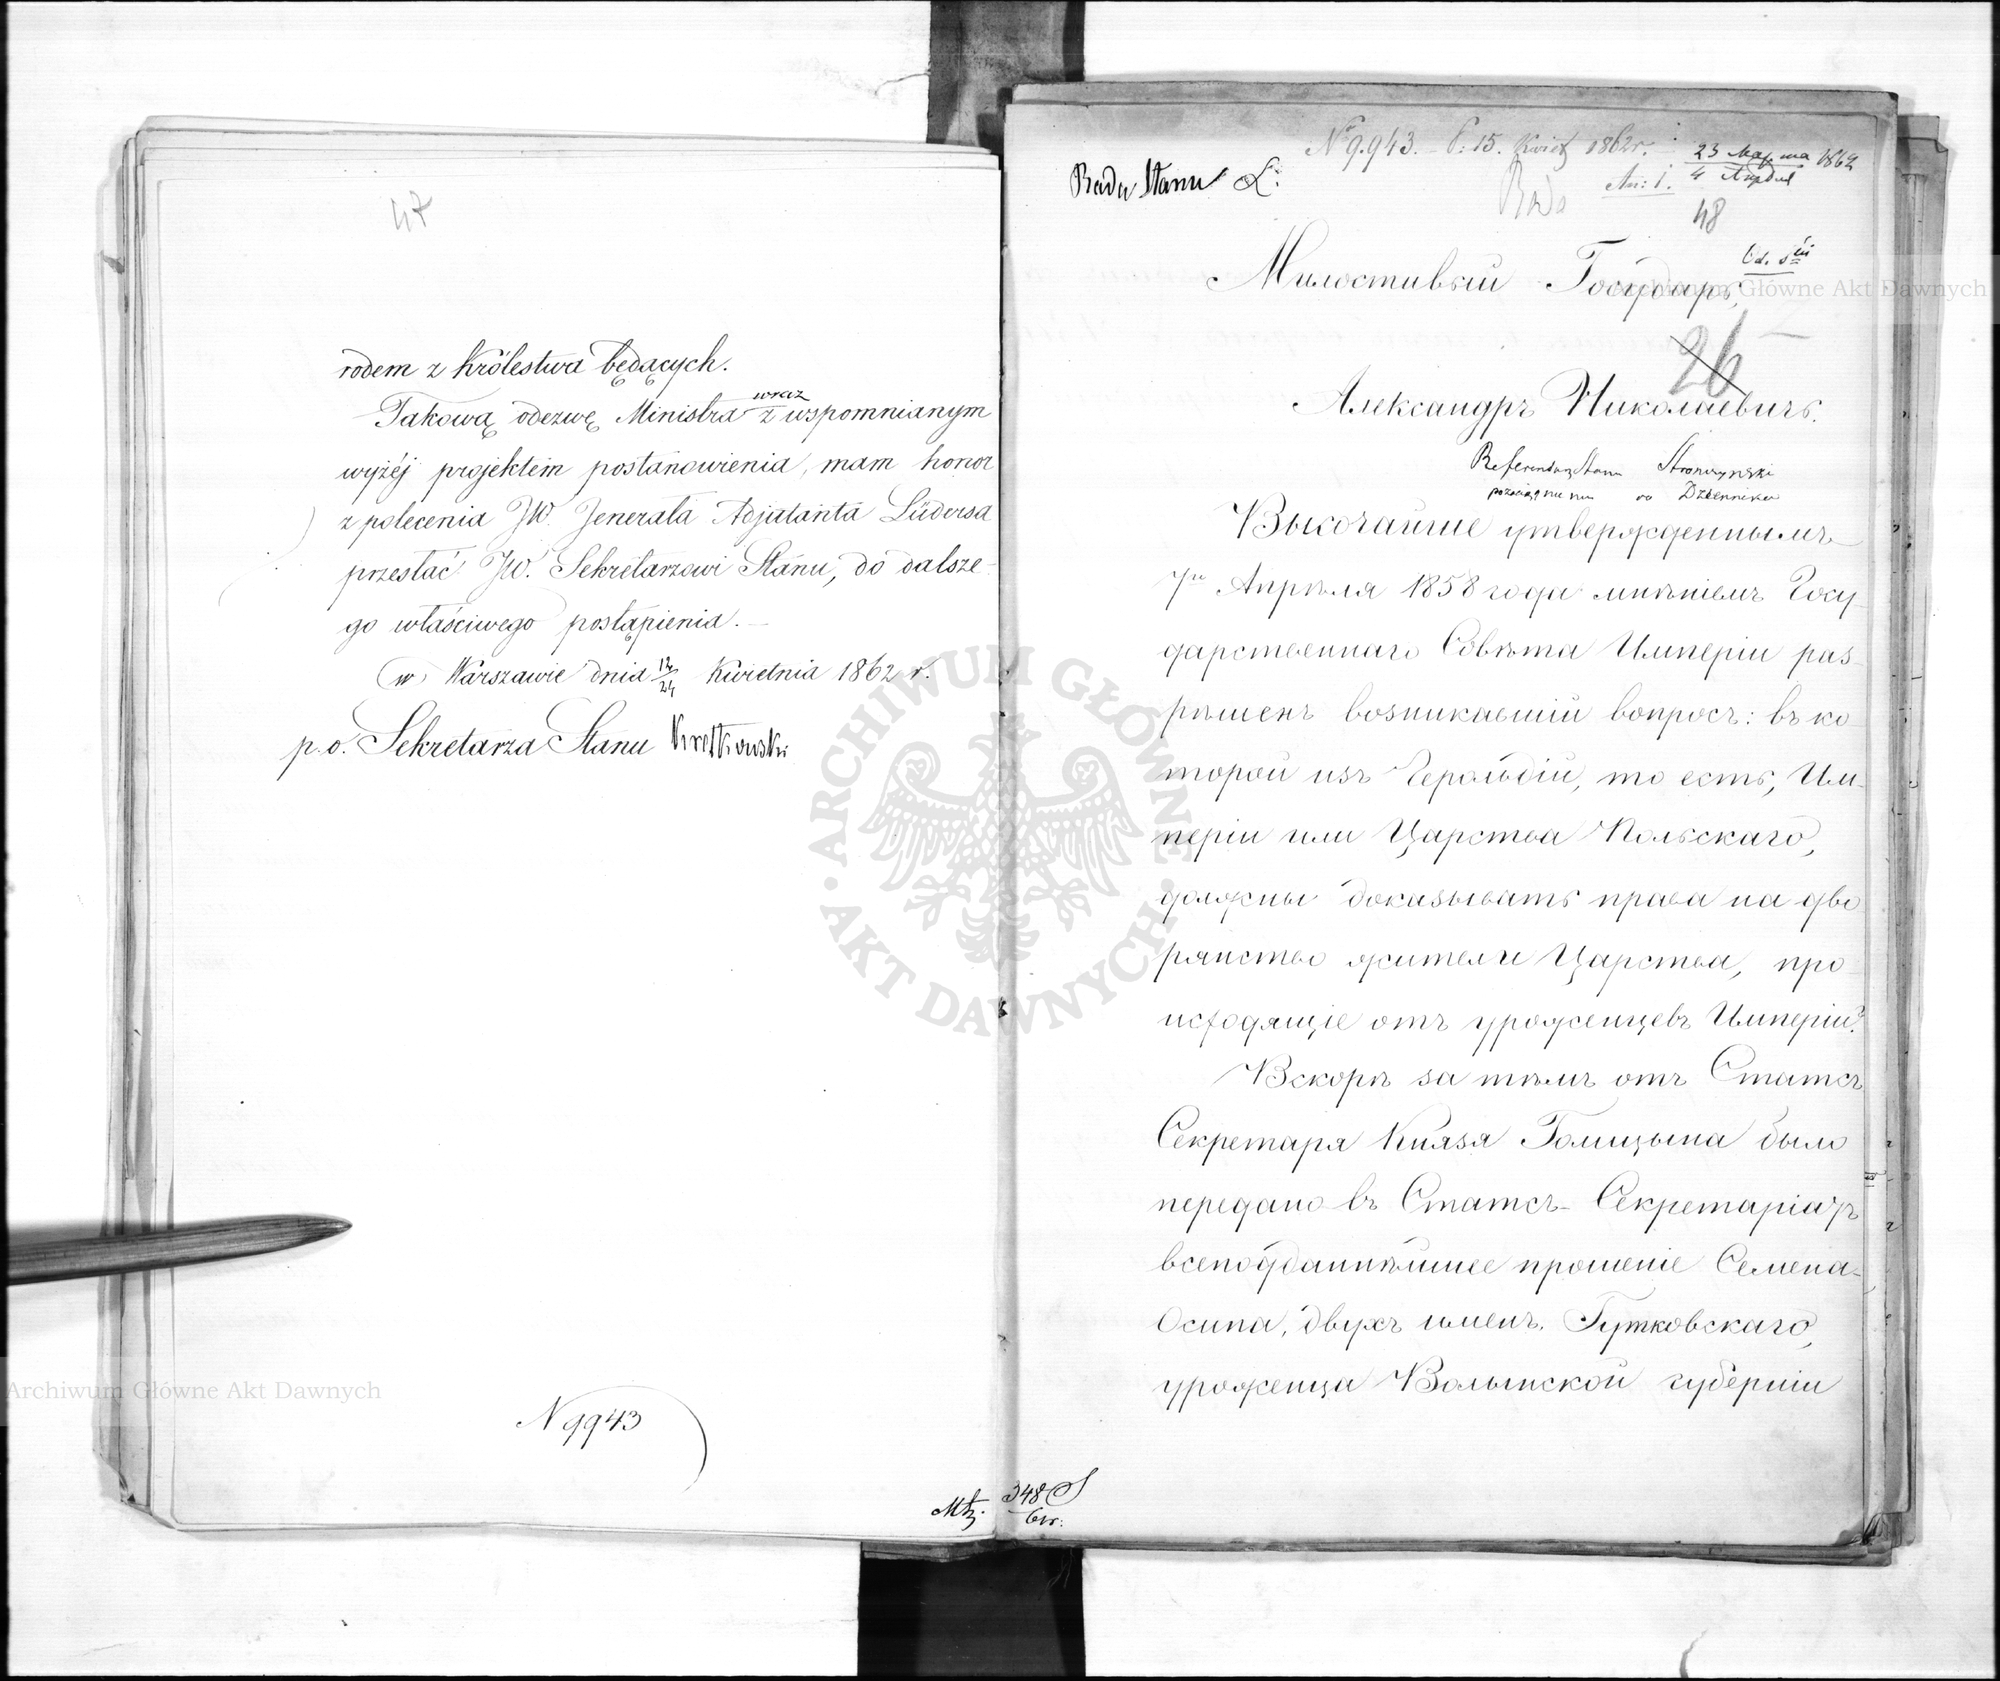 47
rodem z Królestwa będących.
Takową odezwę Ministra wraz z wspomnianym
wyżéj projektem postanowienia, mam honor
z polecenia JW. Jenerała Adjutanta Lüdersa
przesłać JW. Sekretarzowi Stanu, do dalsze-
go właściwego postąpienia.
w Warszawie dnia 12/24 Kwietnia 1862 r.
p.o. Sekretarza Stanu Kretkowski
N 9943
348
N 9.943. 15. Kwiet 1862 r.
23 Марта 1862
4 Апреля
Rada Stanu
Rada
An: 1.
48
Милостивый Государь,
26
Александръ Николаевичъ.
Referendarz Stanu Stronczyński
Высочайше утвержденнымъ
7го Апрѣля 1858 года мнѣніемъ Госу-
дарственнаго Совѣта Имперіи раз-
рѣшенъ возникавшій вопросъ: въ ко-
торой изъ Герольдій, то есть, Им-
періи или Царства Польскаго,
должны доказывать права на дво-
рянство жители Царства, про-
исходящіе отъ уроженцевъ Имперіи?
Вскорѣ за тѣмъ отъ Статсъ
Секретаря Князя Голицына было
передано въ Статсъ-Секретаріатъ
всеподданнѣйшее прошеніе Семена-
Осипа, двухъ именъ Гутковскаго,
уроженца Волынской губерніи
ARCHIWUM GŁÓWNE AKT DAWNYCH
Archiwum Główne Akt Dawnych
Archiwum Główne Akt Dawnych